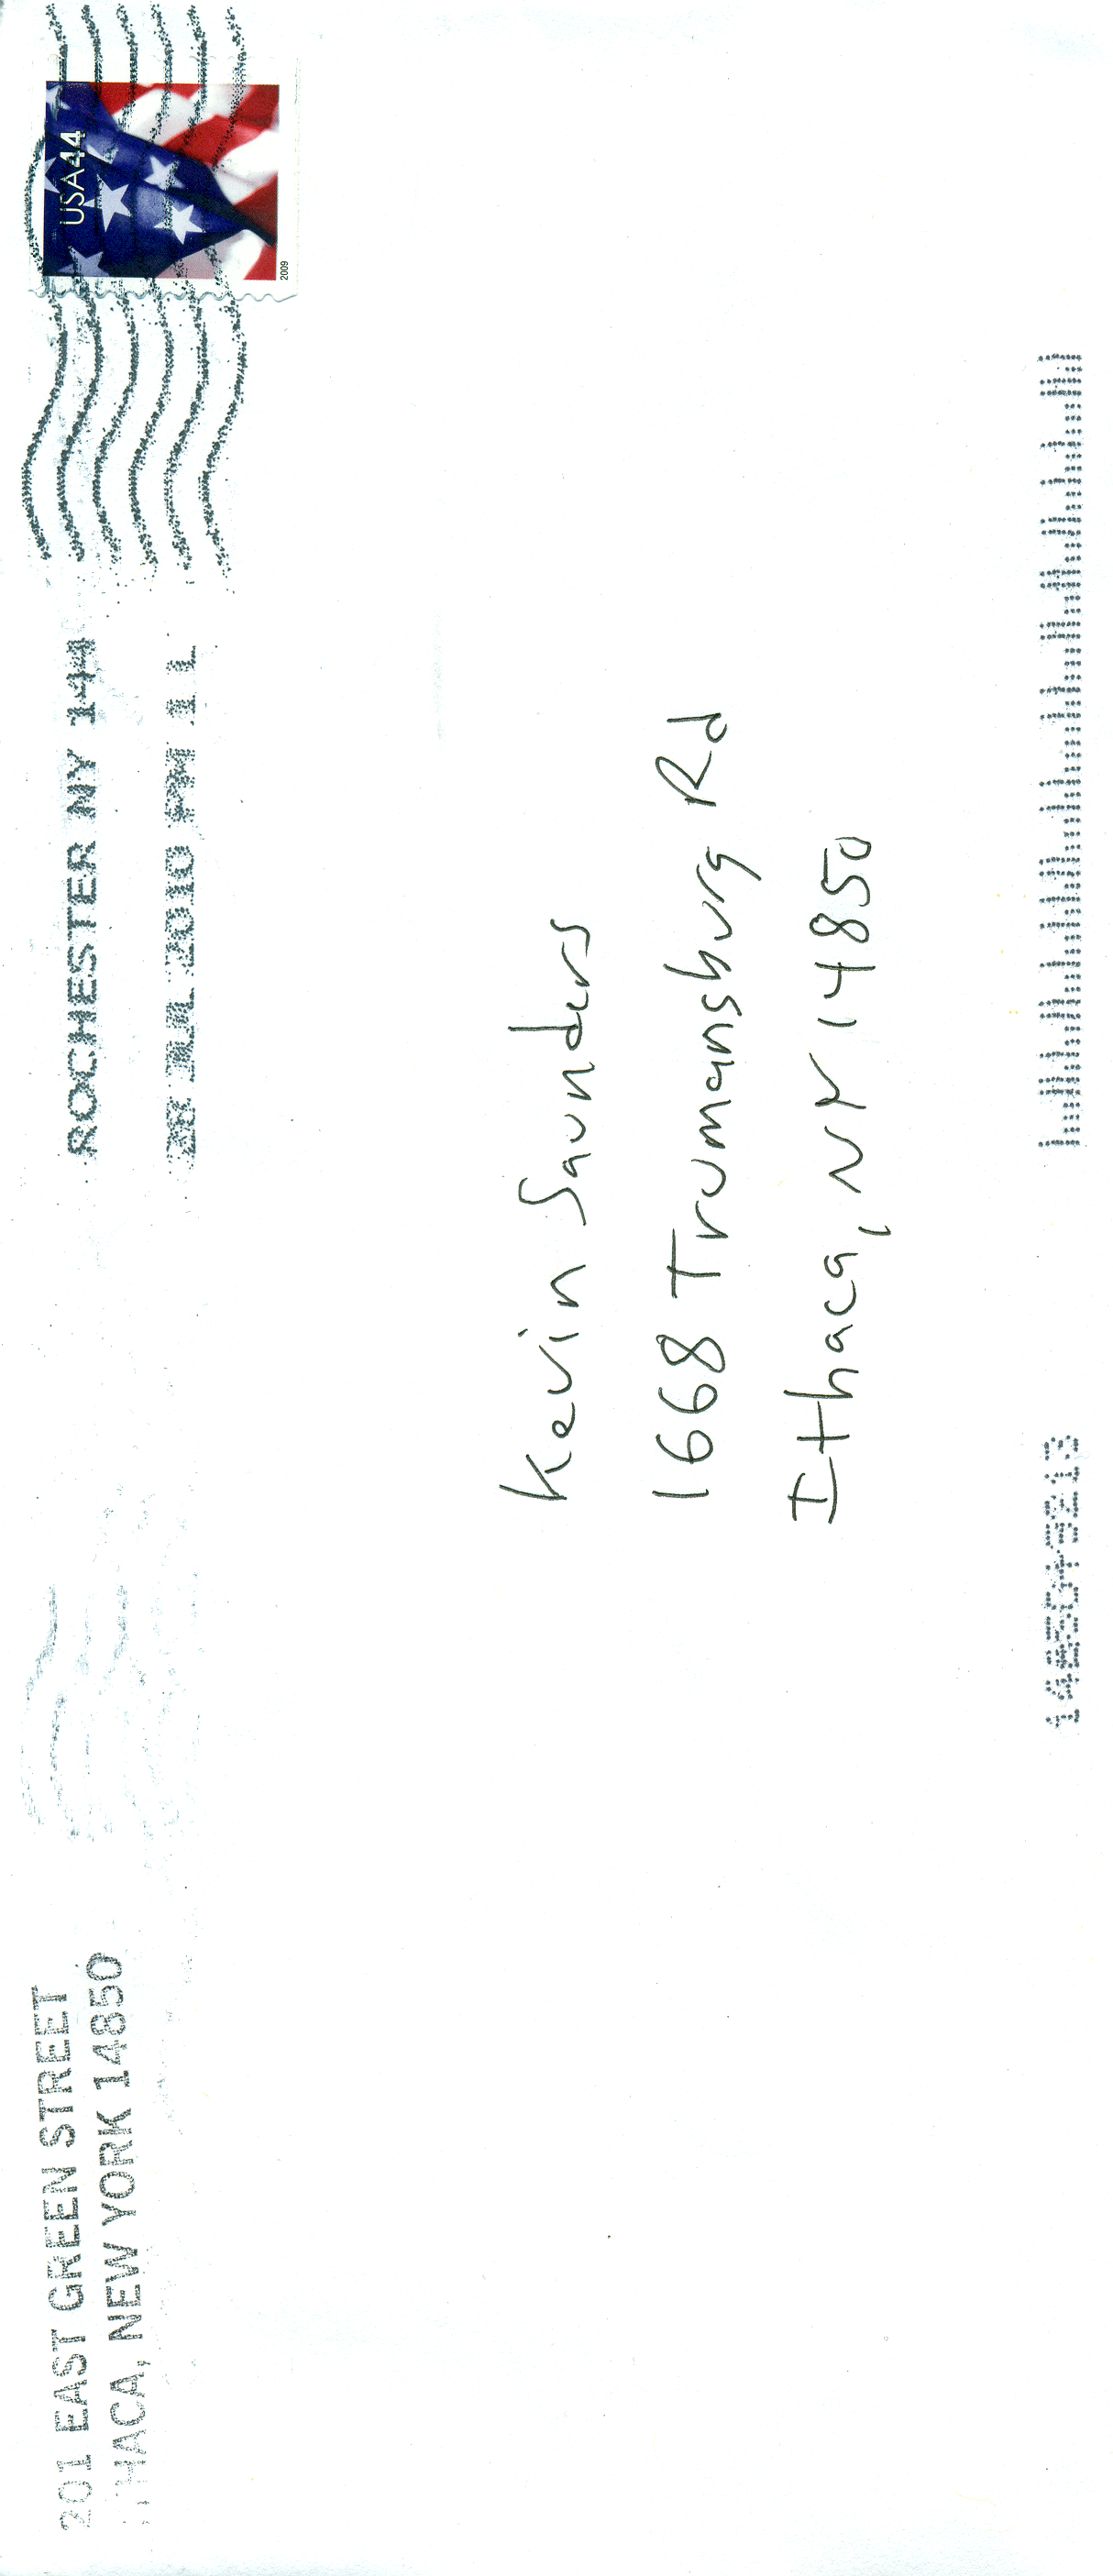 201 EAST GREEN STREET
ITHACA, NEW YORK 14850
ROCHESTER NY 144
JUL 2010 PM 1 L
USA44
2009
Kevin Saunders
1668 Trumansburg Rd
Ithaca, NY 14850